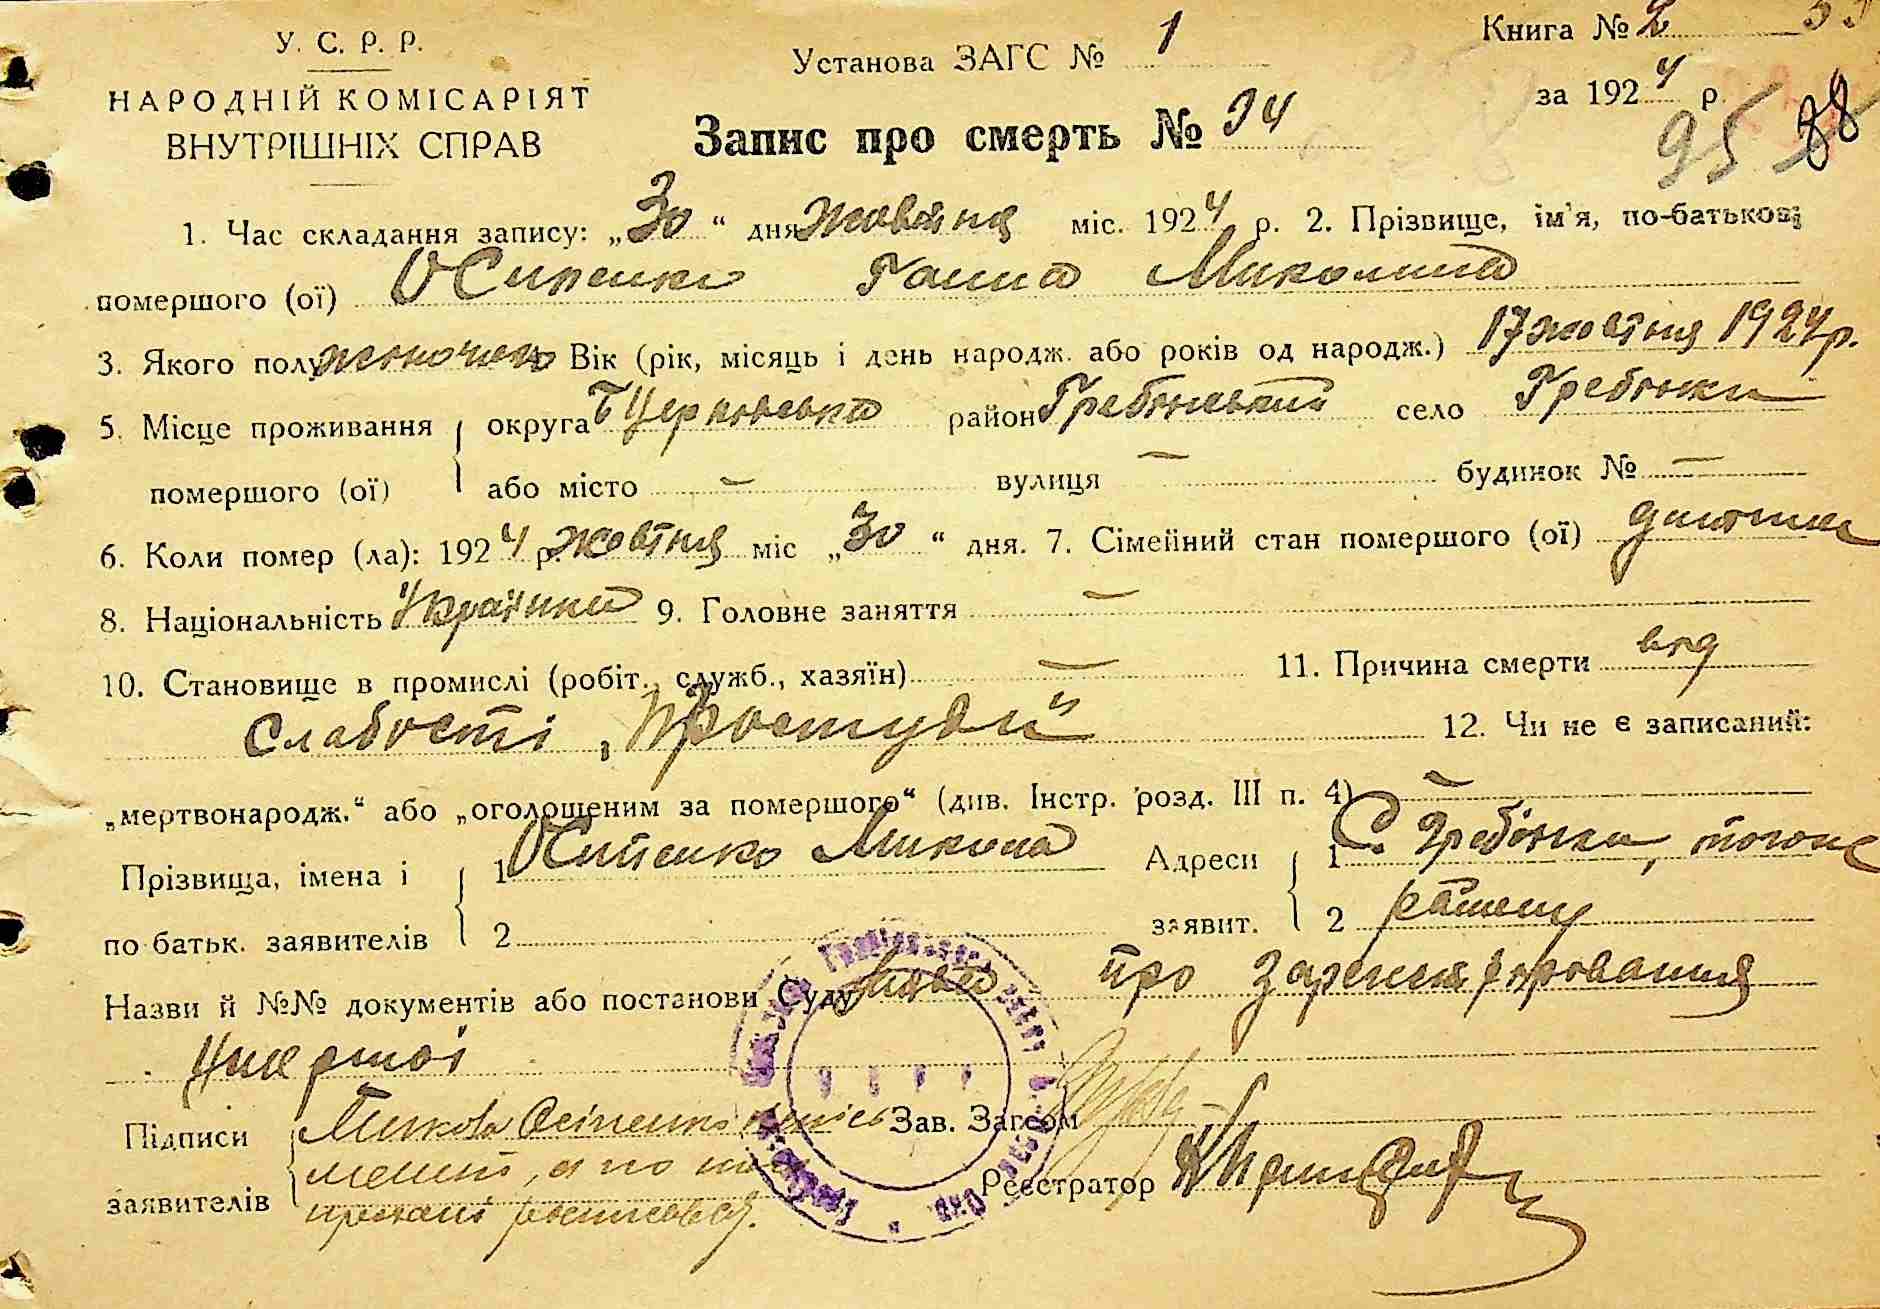 У. С. Р. Р.
НАРОДНІЙ КОМІСАРІЯТ
ВНУТРІШНІХ СПРАВ
Установа ЗАГС № 1
Книга № 2
за 1924 р.
95 88
Запис про смерть № 94
1. Час складання запису: „30“ дня жовтня міс. 1924 р. 2. Прізвище, ім'я, по-батькові
помершого (ої) Осипенко Ганна Миколина
3. Якого полу жіночого Вік (рік, місяць і день народж. або років од народж.) 17 жовтня 1924 р.
5. Місце проживання округа Б Церковська район Гребінський село Гребінки
помершого (ої) або місто — вулиця — будинок № —
6. Коли помер (ла): 1924 р. жовтня міс „30“ дня. 7. Сімейний стан помершого (ої) дитина
8. Національність Українка 9. Головне заняття —
10. Становище в промислі (робіт., служб., хазяїн) — 11. Причина смерти від
слабості „Простуди“ 12. Чи не є записаний:
„мертвонародж.“ або „оголошеним за помершого“ (див. Інстр. розд. III п. 4) —
Прізвища, імена і 1 Осипенко Микола Адреси 1 С. Гребінки,
по батьк. заявителів 2 заявит. 2
Назви й №№ документів або постанови Суду про
умершої
Підписи Микола Осіпенко Зав. Загсом
заявителів Реєстратор